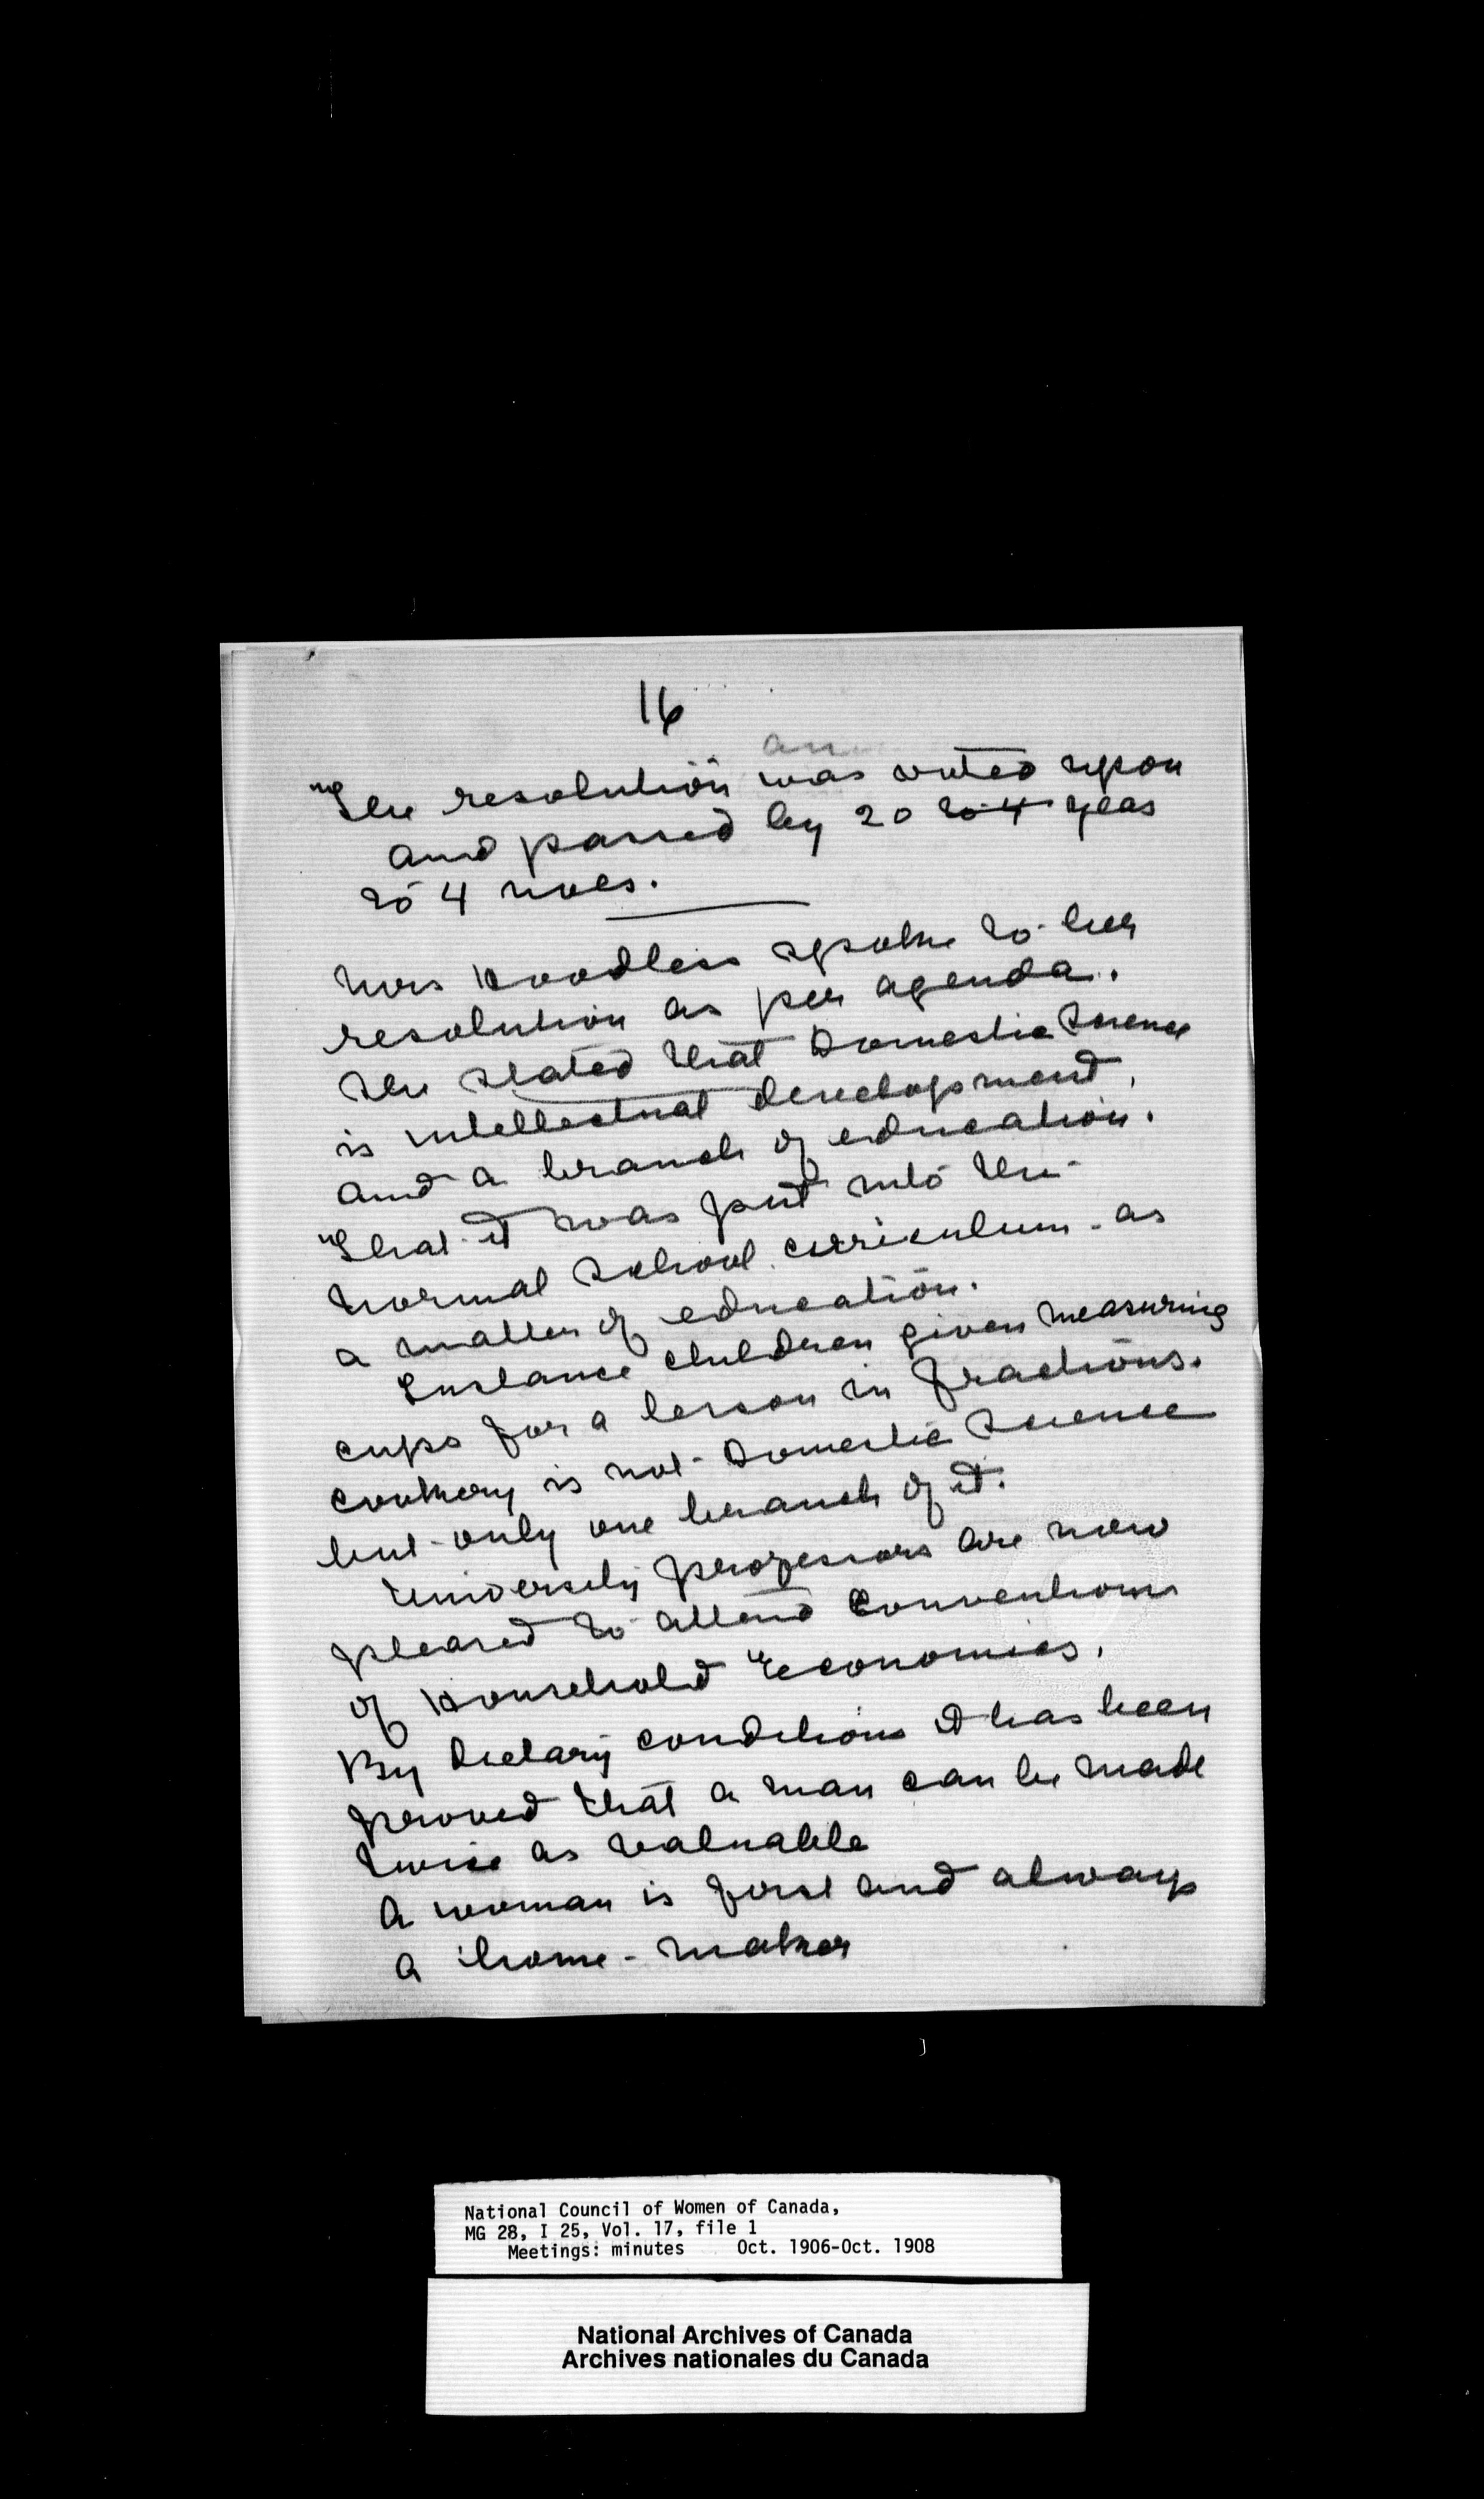 16
The resolution was voted upon
and passed by 20 to 4 yeas
to 4 noes.
Mrs Hoodless spoke to her
resolution as per agenda.
She stated that Domestic Science
is intellectual development,
and a branch of education.
That it was put into the
Normal School curriculum - as
a matter of education.
Instance children given measuring
cups for a lesson in fractions.
Cookery is not Domestic Science
but only one branch of it.
University professors are now
pleased to attend Conventions
of Household Economics.
By Dietary conditions it has been
proved that a man can be made
twice as valuable
A woman is first and always
a home-maker
National Council of Women of Canada,
MG 28, I 25, Vol. 17, file 1
Meetings: minutes Oct. 1906-Oct. 1908
National Archives of Canada
Archives nationales du Canada